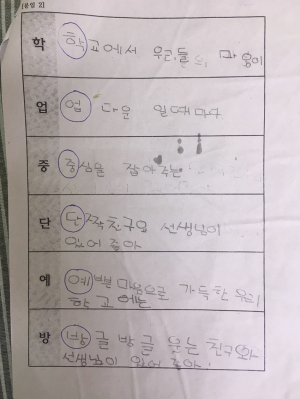 [붙임 2]
학
학교에서 우리들의 마음이
업
업 다운 일때마다
중
중심을 잡아주는
단
단짝친구인 선생님이
있어 좋아
예
예쁜마음으로 가득한 우리
학교에는
방
방글 방글 웃는 친구와
선생님이 있어 좋아!